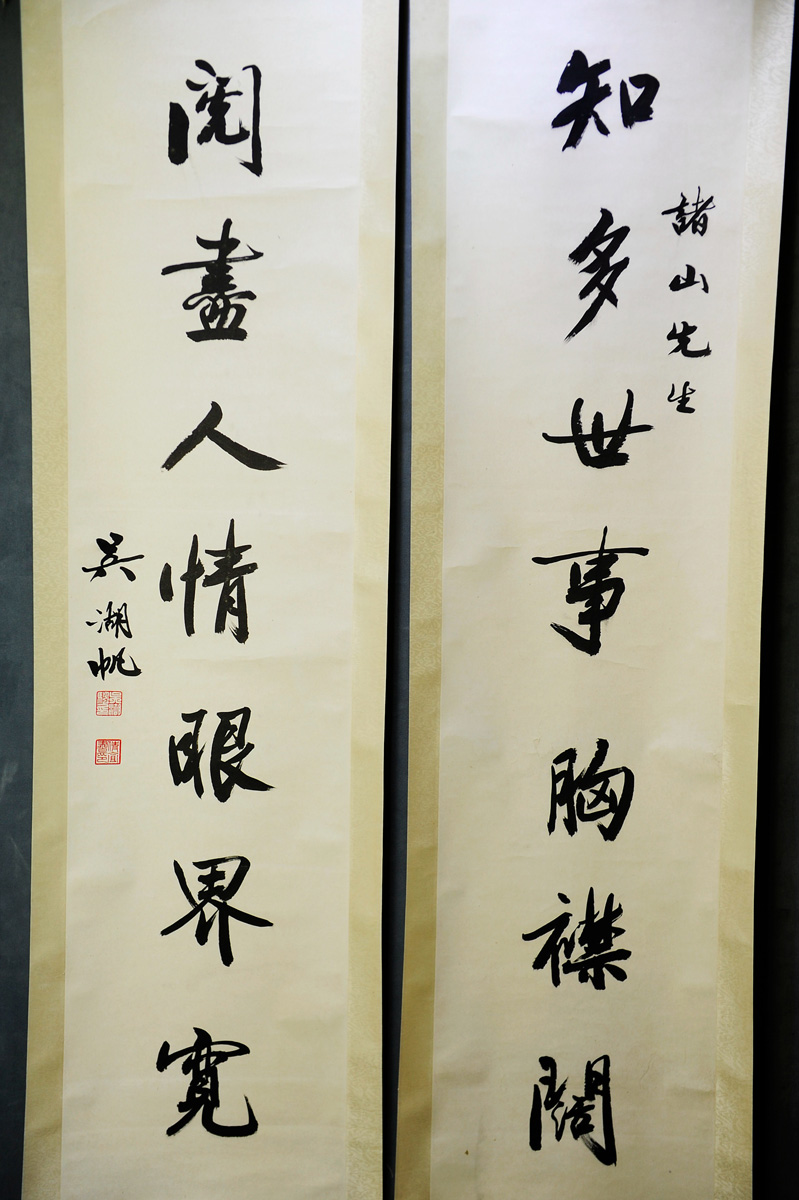 知多世事胸襟闊
諸山先生
閱盡人情眼界寬
吳湖帆